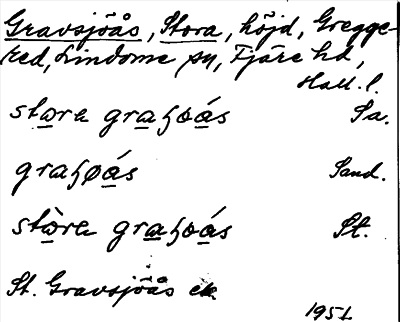 Gravsjöås, Stora, höjd, Gregge-
red, Lindome sn, Fjäre hd,
Hall. l.
stơra graɧơás Sa.
graɧøás Sand.
stòra graɧơás St.
St. Gravsjöås ek.
1951